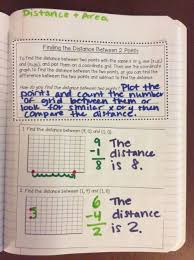 Distance + Area
Finding the Distance Between 2 Points
To find the distance between two points with the same x or y, use (x,y)
and (x,y), and plot them on a coordinate grid. Then use the coordinate
graph to find the distance between the two points, or you can find the
difference between the two points and subtract to find the distance.
How do you find the distance between two points? Plot the
points and count the number
of grid between them or
look for similar x or y then
compare the distance.
1. Find the distance between (9, 0) and (1, 0).
9 The
-1 distance
8 is 8.
2. Find the distance between (1, 4) and (1, 6).
6 The
-4 distance
2 is 2.